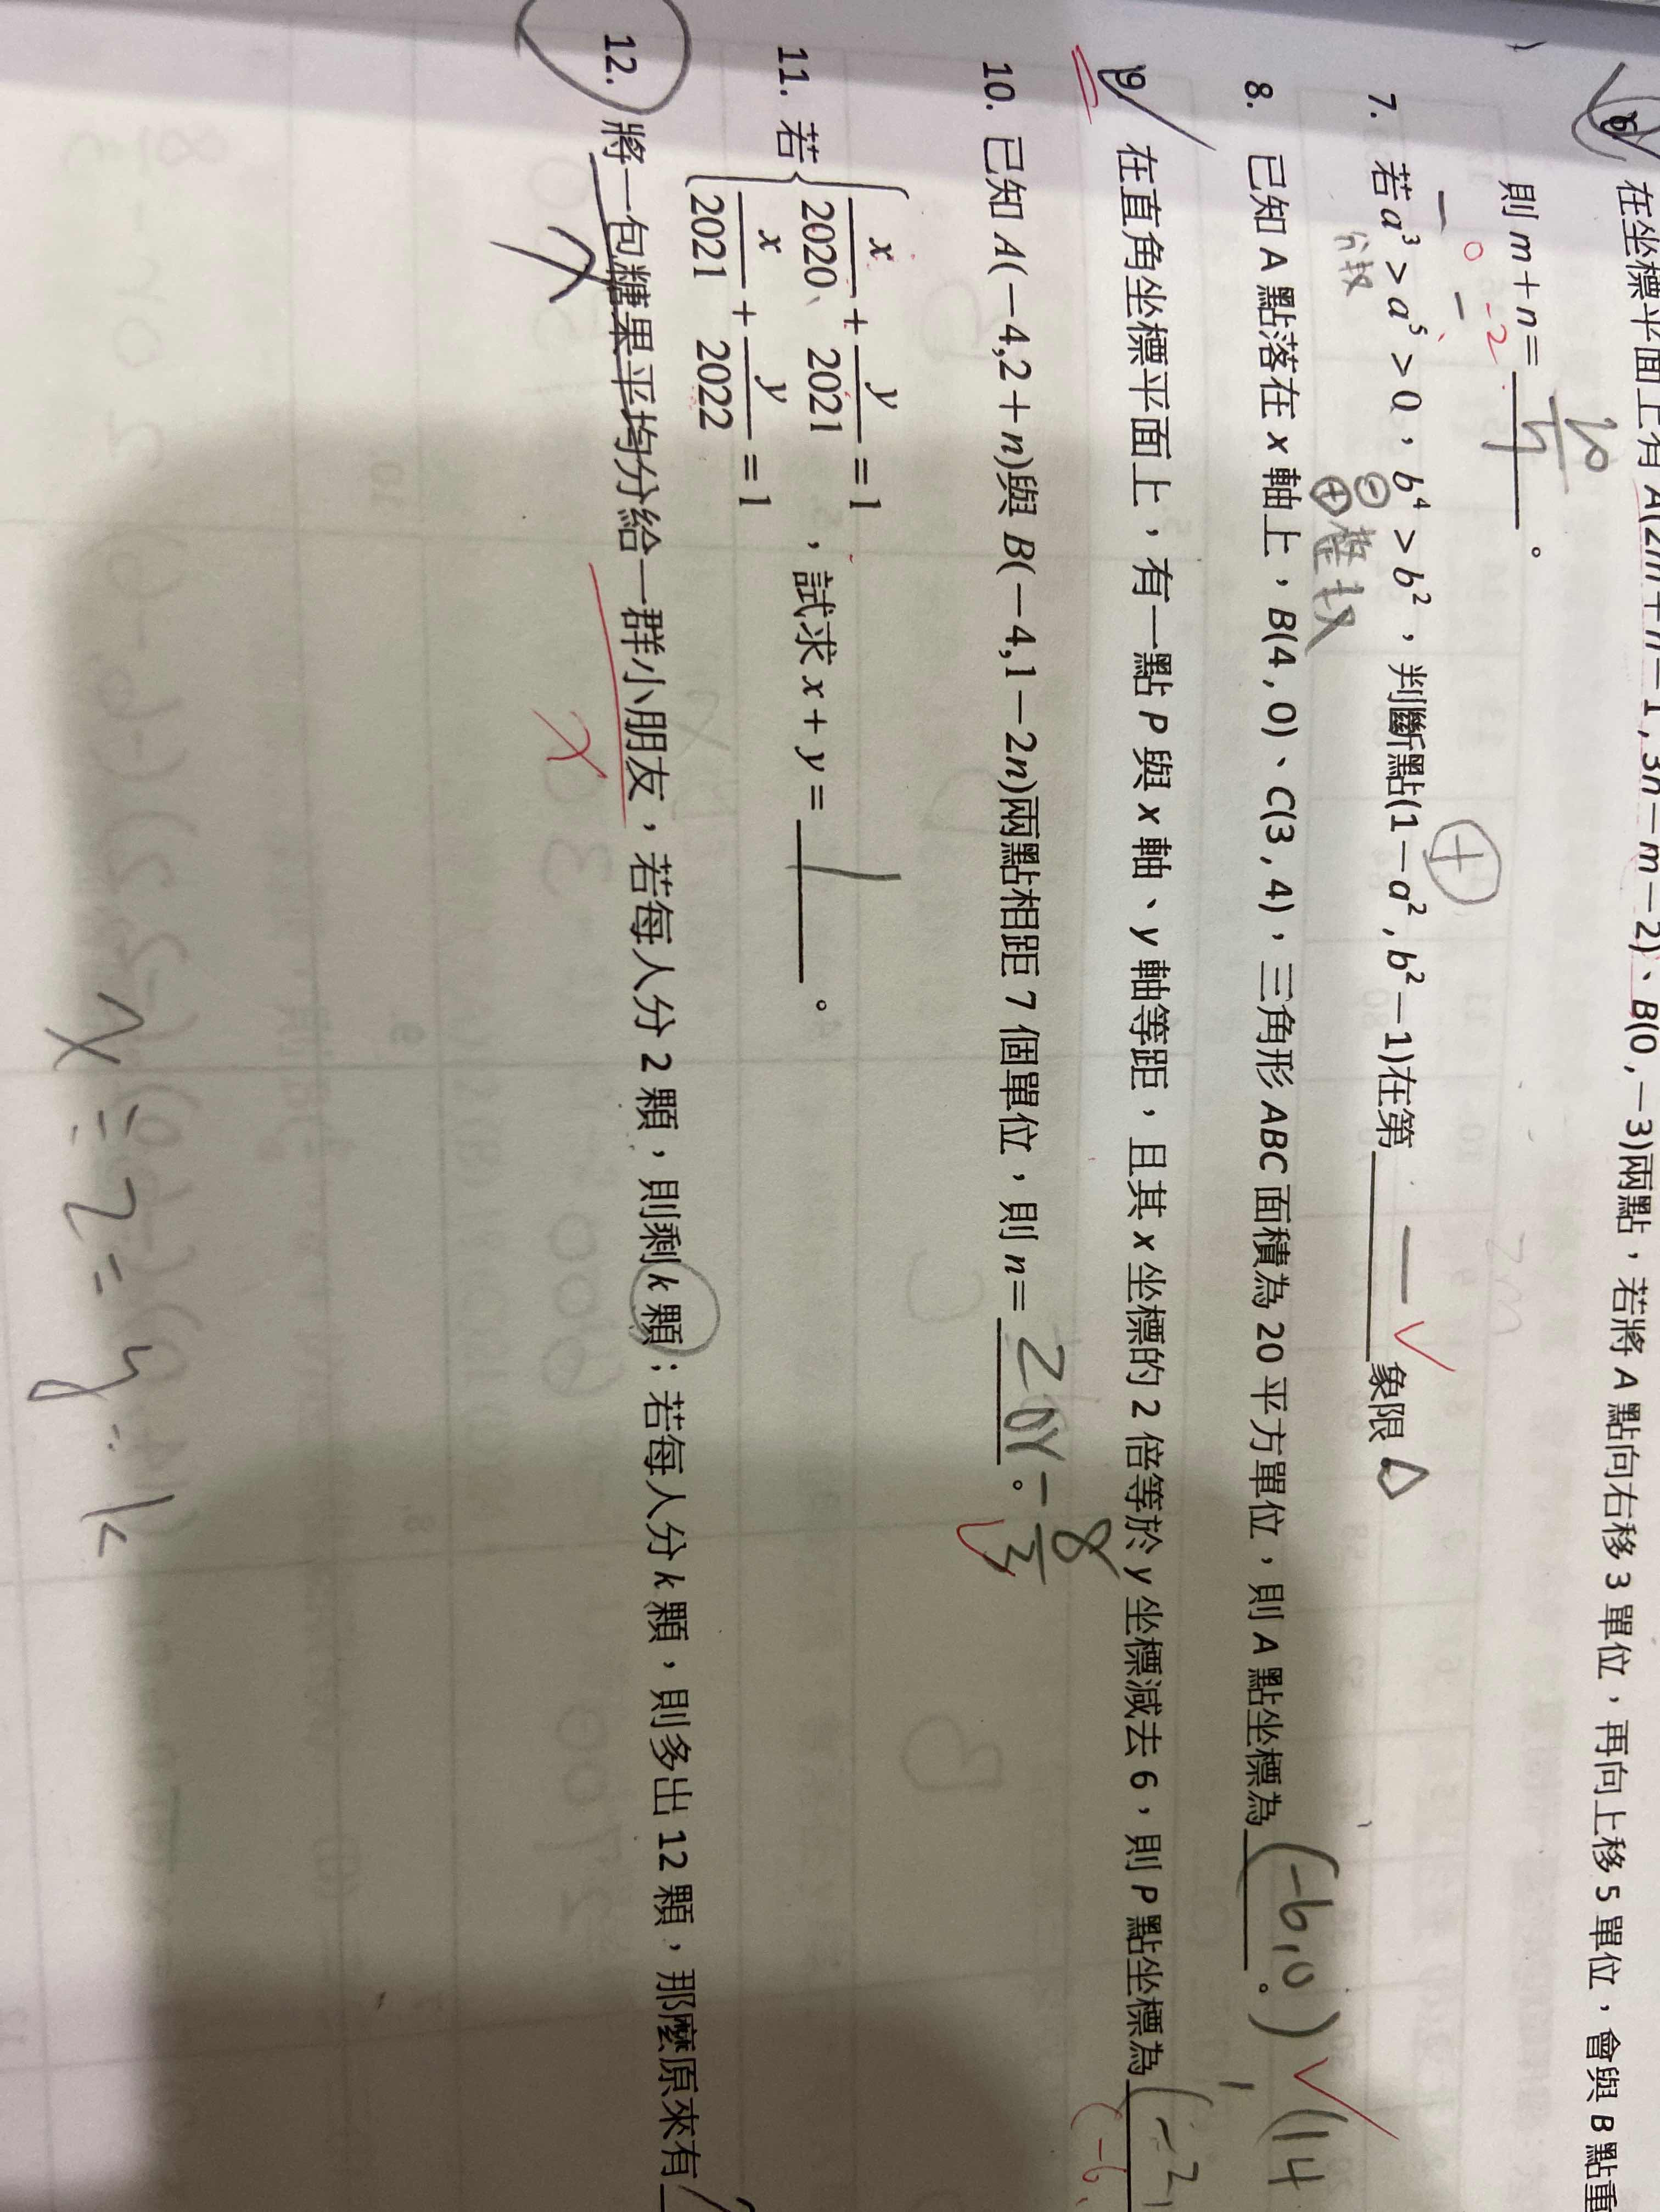 6. 在坐標平面上有 A(2m+n-1,3n-m-2)、B(0,-3)兩點,若將 A 點向右移 3 單位,再向上移 5 單位,會與 B 點重
則 m+n=______。
0 -2
7. 若 a³>a⁵>0,b⁴>b²,判斷點(1-a²,b²-1)在第______象限
分數
⊖ ⊕ 整數
⊕
一 ✓
8. 已知 A 點落在 x 軸上,B(4,0)、C(3,4),三角形 ABC 面積為 20 平方單位,則 A 點坐標為______。
(-6,0) ✓ (14
9. 在直角坐標平面上,有一點 P 與 x 軸、y 軸等距,且其 x 坐標的 2 倍等於 y 坐標減去 6,則 P 點坐標為
(-2,
(-6,
10. 已知 A(-4,2+n)與 B(-4,1-2n)兩點相距 7 個單位,則 n=______。
2 or -8/3
11. 若{x/2020+y/2021=1
x/2021+y/2022=1,試求 x+y=______。
12. 將一包糖果平均分給一群小朋友,若每人分 2 顆,則剩 k 顆;若每人分 k 顆,則多出 12 顆,那麼原來有
x
x
x÷2=y…k